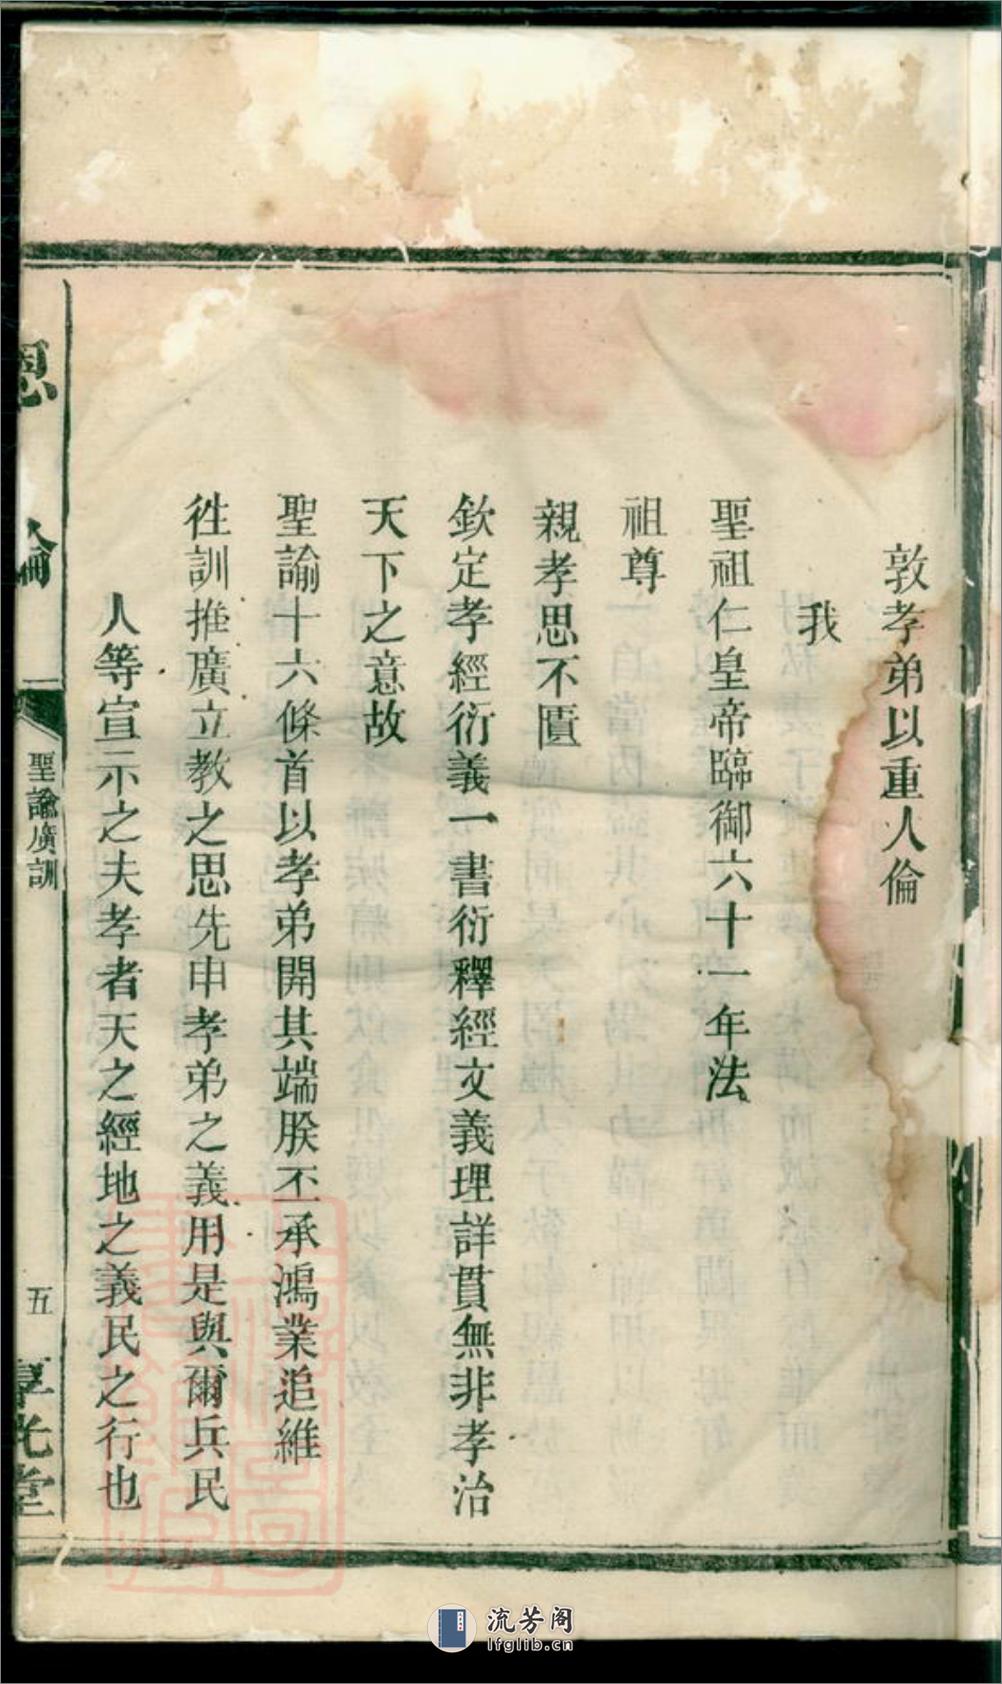 敦孝弟以重人倫
我
聖祖仁皇帝臨御六十一年法
祖尊
親孝思不匱
欽定孝經衍義一書衍釋經文義理詳貫無非孝治
天下之意故
聖諭十六條首以孝弟開其端朕丕承鴻業追維
徃訓推廣立教之思先申孝弟之義用是與爾兵民
人等宣示之夫孝者天之經地之義民之行也
恩綸
聖諭廣訓
五
享光堂
流芳阁
lfglib.cn